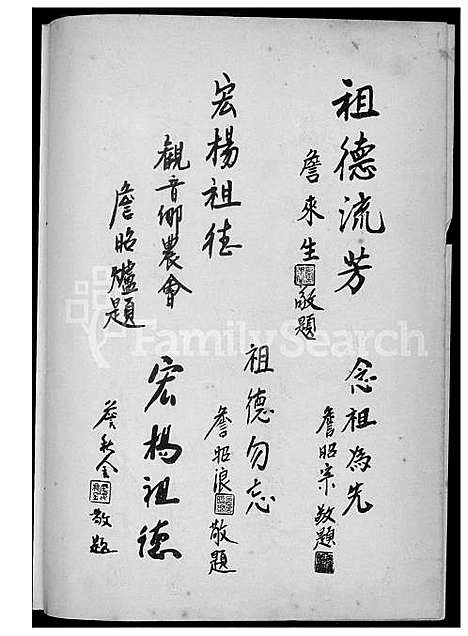 祖德流芳
詹來生敬題
宏楊祖德
觀音鄉農會
詹昭爐題
念祖為先
詹昭宗敬題
祖德勿忘
詹昭浪敬題
宏楊祖德
詹秋金敬題
FamilySearch